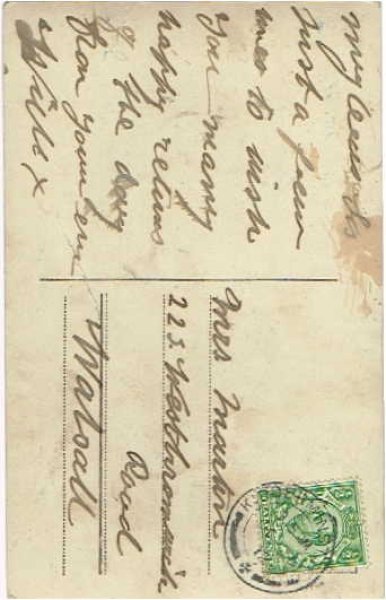 My dear
Just a few
lines to wish
you many
happy returns
of the day
from your ever
Will x
Mrs Marten
223 Westbromwich
Road
Walsall